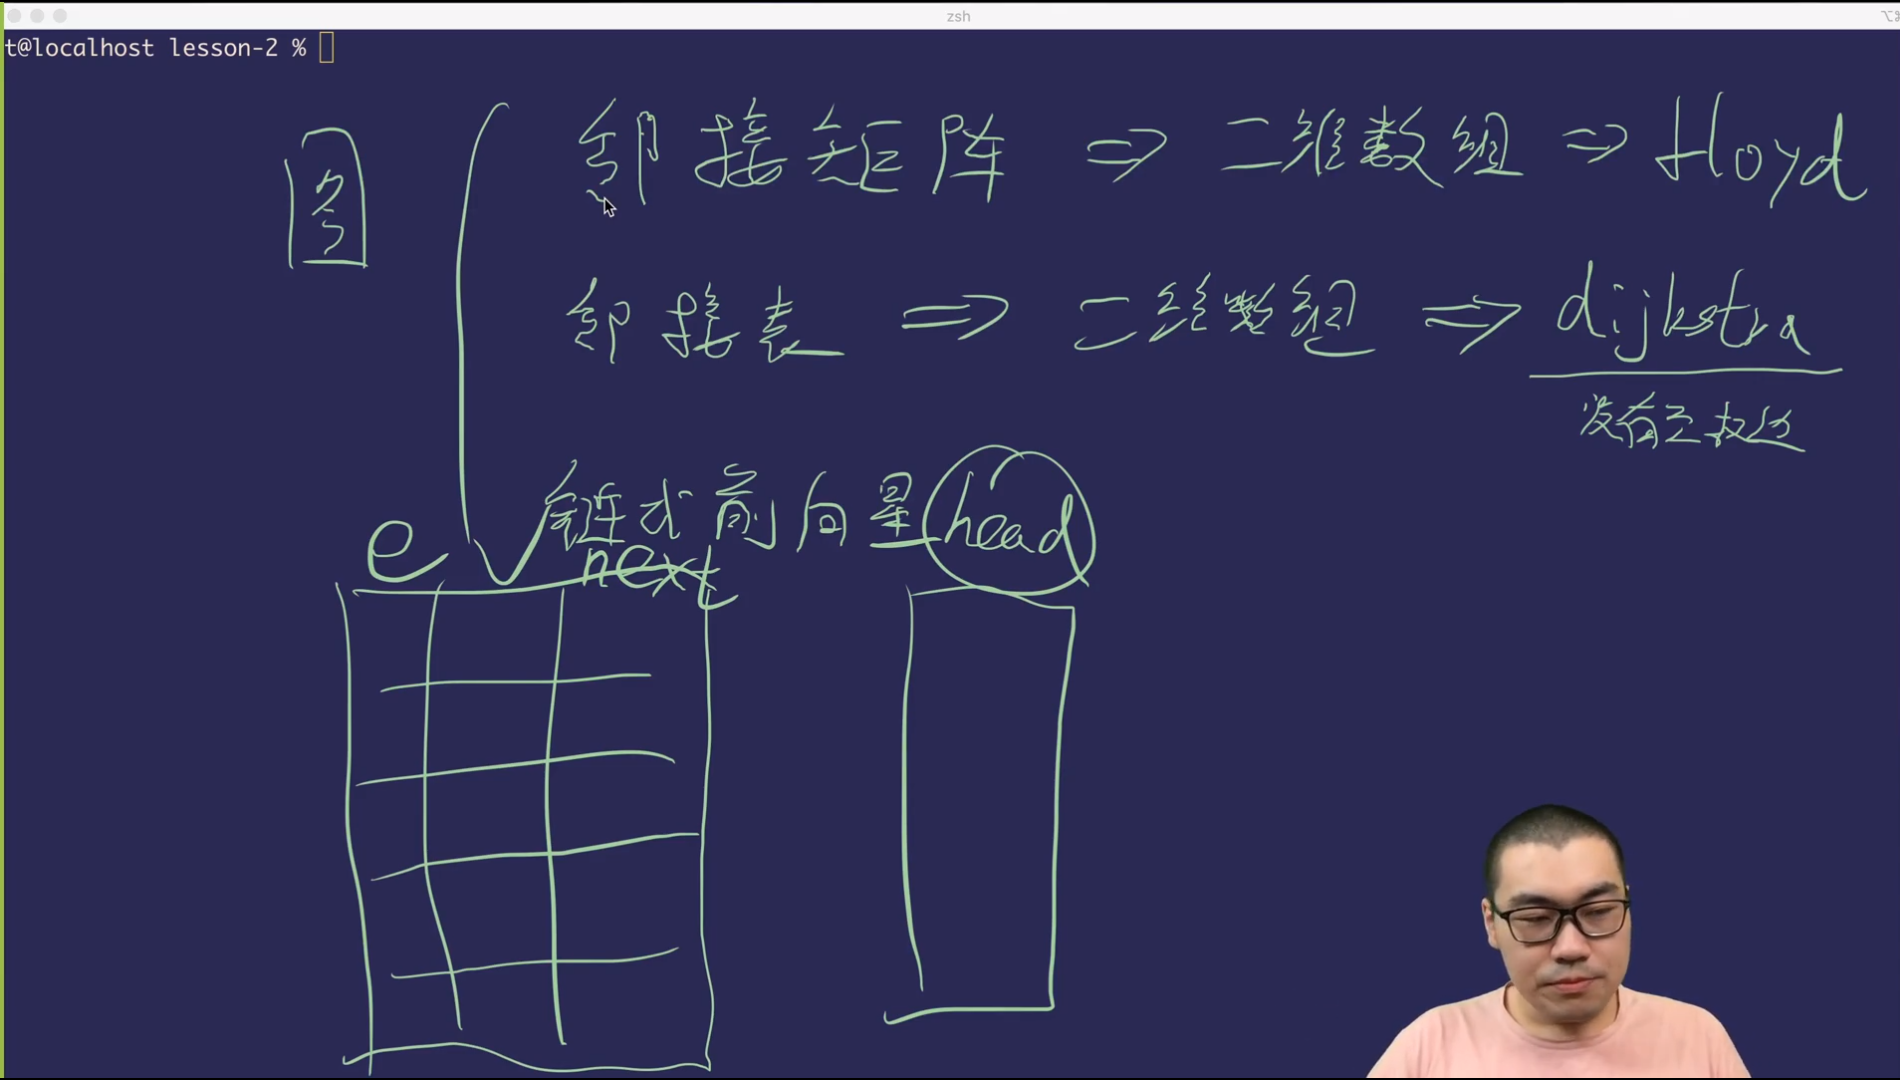 zsh
t@localhost lesson-2 %
图
邻接矩阵 ⇒ 二维数组 ⇒ Floyd
邻接表 ⇒ 二维数组 ⇒ dijkstra
没有负权边
链式前向星 head
e next